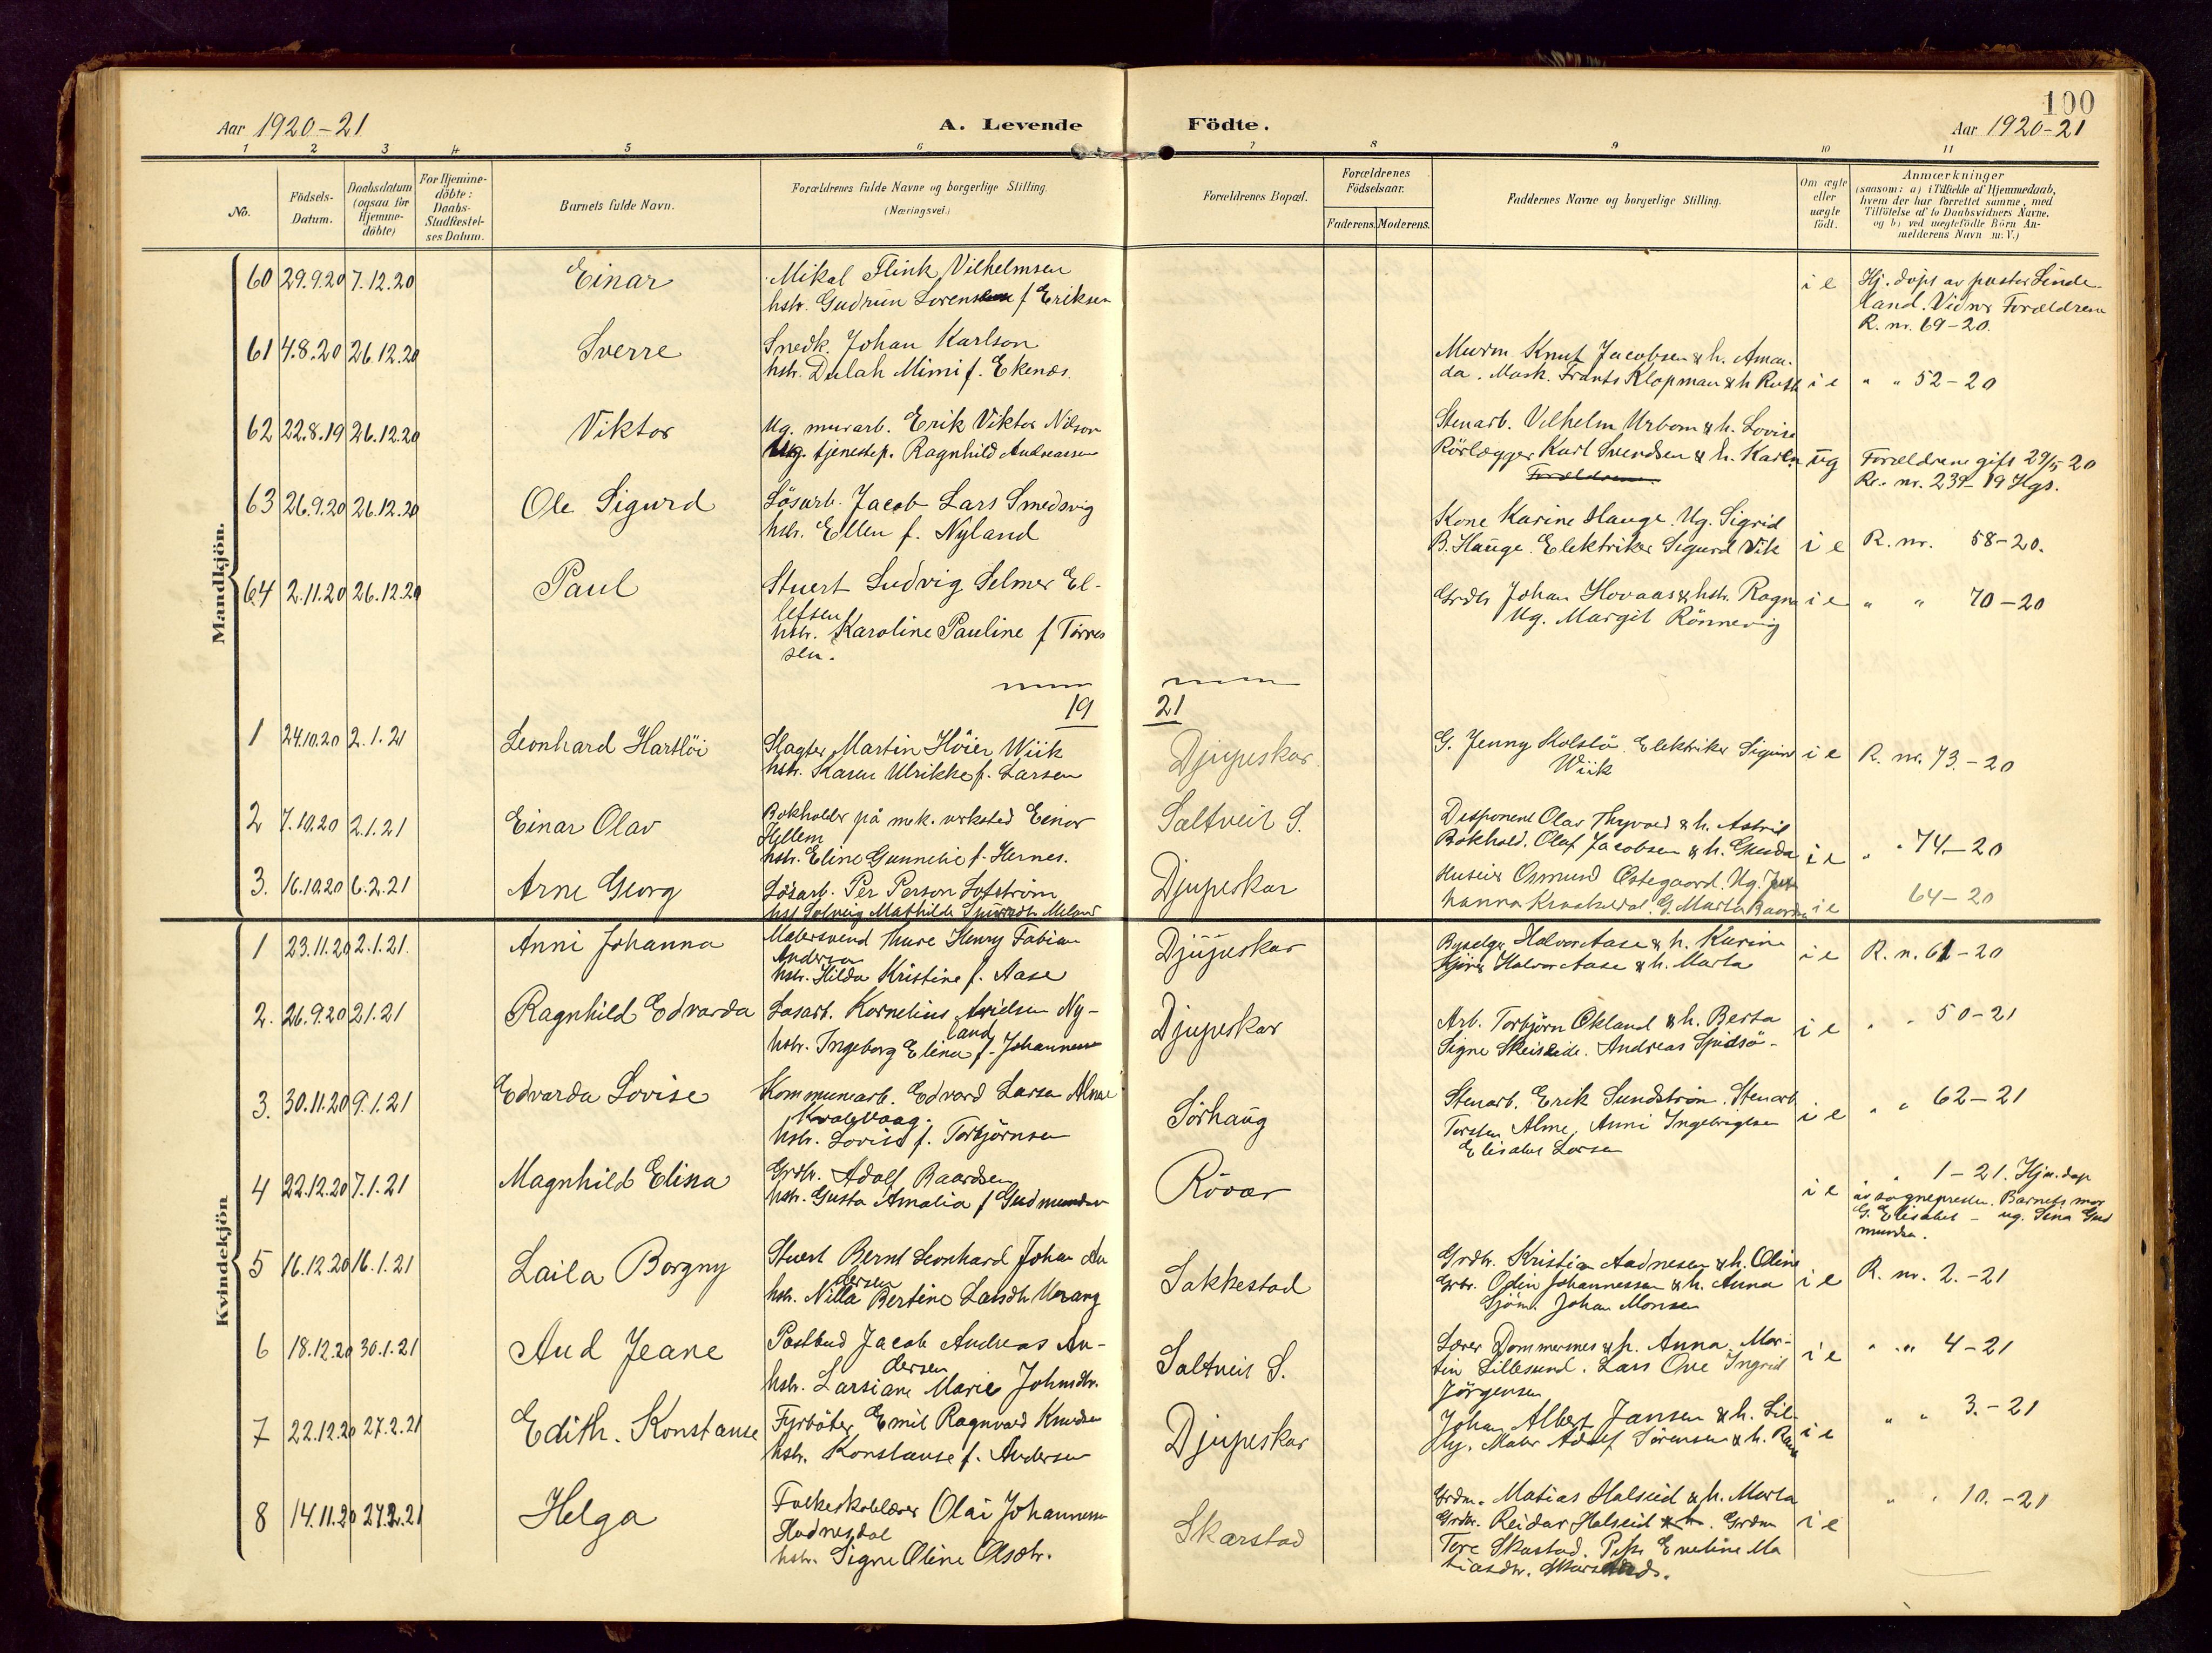 100
Aar 1920-21
A. Levende Födte.
Aar 1920-21
1 2 3 4 5 6 7 8 9 10 11
No.
Födsels-Datum.
Daabsdatum (ogsaa for Hjemme-döbte)
For Hjemme-döbte: Daabs-Stadfæstel-ses Datum.
Barnets fulde Navn.
Forældrenes fulde Navne og borgerlige Stilling. (Næringsvei.)
Forældrenes Bopæl.
Forældrenes Födselsaar.
Faderens. Moderens.
Faddernes Navne og borgerlige Stilling.
Om ægte eller uægte födt.
Anmærkninger
(saasom: a) i Tilfælde af Hjemmedaab,
hvem der har forrettet samme, med
Tilföielse af to Daabsvidners Navne.
og b) ved uægtefödte Börn An-
melderens Navn m. V.)
Mandkjön.
60 29.9.20 7.12.20 Einar
Mikal Flink Vilhelmsen
hstr. Gudrun f Eriksen
i e
Hj. döpt av pastor Linde-
land. Vidner Forældrene
R. nr. 69-20.
61 4.8.20 26.12.20 Sverre
Snedk. Johan Karlson
hstr. Dulah Mimi f. Ekenæs.
Murm. Knut Jacobsen & h. Aman-
da. Mask. Frants Klopman & h Ruth i e " " 52-20
62 22.8.19 26.12.20 Viktor
Ug. murarb. Erik Viktor Nilson
Ug. tjenestep. Ragnhild Andreassen
Stenarb. Vilhelm Urbom & h. Lovise
Rörlægger Karl Svendsen & h. Karen ug
Forældrene
Forældrene gift 29/5 20
Re. nr. 239-19 Hgs.
63 26.9.20 26.12.20 Ole Sigurd
Lösarb. Jacob Lars Smedsvig
hstr. Ellen f. Nyland
Kone Karine Hauge. Ug. Sigrid
B. Hauge. Elektriker Sigurd Vik i e R. nr. 58-20.
64 2.11.20 26.12.20 Paul
Stuert Ludvig Selmer El-
lefsen
hstr. Karoline Pauline f Törres
sen.
Grdbr Johan Hovaas & hstr. Ragna i e " " 70-20
Ug. Margit Rönnevig
19 21
1 24.10.20 2.1.21 Leonhard Hartlöi
Slagter Martin Höier Wiik
hstr. Karen Ulrikke f. Larsen
Djupeskar.
G. Jenny Kolstö. Elektriker Sigurd
Wiik
i e R. nr. 73.-20
2 7.10.20 2.1.21 Einar Olav
Bokholder på mek. verksted Einar
Hellem
hstr. Eline Gunnelie f. Hernes.
Saltveit S.
Disponent Olav Thyvold & h. Astrid
Bokhold. Oluf Jacobsen & h. Gunda i e " " 74-20
3. 16.10.20 6.2.21 Arne Georg
Lösarb. Per Person Lofström
hst Solveig Mathilde
Djupeskar
Huseier Osmund Östegaard. Ug. Jo-
hanna G. Marta i e 64-20
Kvindekjön
1 23.11.20 2.1.21. Anni Johanna
Malersvend Thure Henry Fabian
Andersen
hstr. Hilda Kristine f. Aase
Djupeskar
Halvor Aase & h. Karine
Halvor Aase & h. Marta
i e R. n. 61-20
2. 26.9.20 2.1.21 Ragnhild Edvarda
Lösarb. Kornelius Ny-
land
hstr. Ingeborg Eline f. Johannessen
Djupeskar
Arb. Torbjörn Økland & h. Berta
Signe Skeiseide. Andreas
i e " " 50-21
3. 30.11.20 9.1.21 Edvarda Lovise
Kommunearb. Edvard Larsen Alme
Kvalevaag.
hstr. Lovise f. Torbjörnsen
Sörhaug
Stenarb. Erik Sundström. Stenarb
Torsten Alme. Anni Ingebrigtsen
Elisabet Larsen
i e " " 62-21
4 22.12.20 7.1.21 Magnhild Elisa
Grdbr. Adolf Baardsen
hstr. Gusta Amalia f Gudmundsen
Rövær
i e
" 1-21. Hjm. dap
av sogneprestn. Barnets mor
G. Elisabet - ug. Sina Gud
mundsen.
5 16.12.20 16.1.21 Laila Borgny
Stuert Bernt Leonhard Johan An
dersen
hstr. Nilla Bertine Larsdtr Vorang
Sakkestad
Grdbr. Kristian Aadnesen & h. Oline
Grbr. Odin Johannessen & h. Anna
Sjöm. Johan Monsen
i e R. nr. 2.-21
6 18.12.20 30.1.21 Aud Jeane
Postbud Jacob Andreas An-
dersen
hstr. Larsiane Marie Johnsdtr.
Saltveit S.
Lærer Dommersnes & h. Anna. Mar-
tin Lillesund. Lars Ove Ingrid
Jörgensen
i e " " 4-21
7 22.12.20 27.2.21 Edith. Konstanse
Fyrböter Emil Ragnvald Knudsen
hstr. Konstanse f. Andersen
Djupeskar
Johan Albert Jansen & h. Lil-
ly. Maler Adolf Sörensen & h.
i e " " 3.-21
8 14.11.20 27.2.21 Helga
Folkeskolelærer Olai Johannessen
Hadnesdal
hstr. Signe Oline Olsdtr.
Skarstad
Grdm. Matias Halseid & h. Marta
Grdbr. Reidar Halseid & h. Grdm
Tore Skastad. Eveline Ma
tiasdtr.
i e " " 10.-21